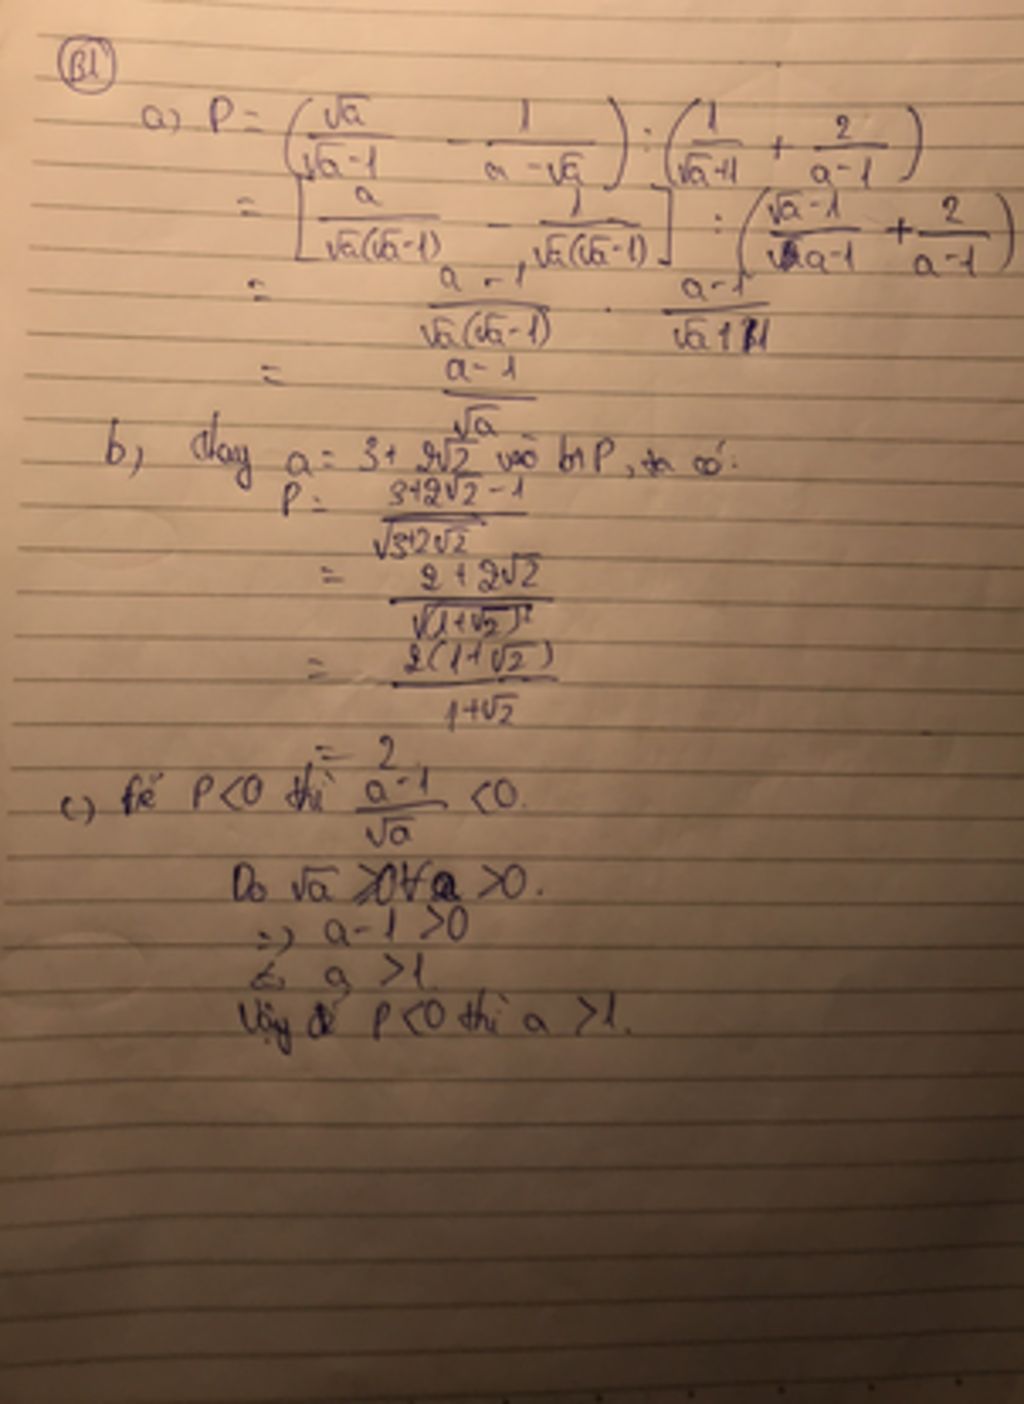 B1
a) P = (√a/(√a-1) - 1/(a-√a)) : (1/(√a+1) + 2/(a-1))
= [a/(√a(√a-1)) - 1/(√a(√a-1))] : ((√a-1)/(a-1) + 2/(a-1))
= (a-1)/(√a(√a-1)) . (a-1)/(√a+1)
= (a-1)/√a
b, thay a = 3+2√2 vào bt P, ta có:
P = (3+2√2-1)/√(3+2√2)
= (2+2√2)/√((1+√2)²)
= 2(1+√2)/(1+√2)
= 2
c) Để P<0 thì (a-1)/√a <0.
Do √a >0 ∀ a >0.
=> a-1 >0
<=> a >1.
Vậy để P<0 thì a >1.